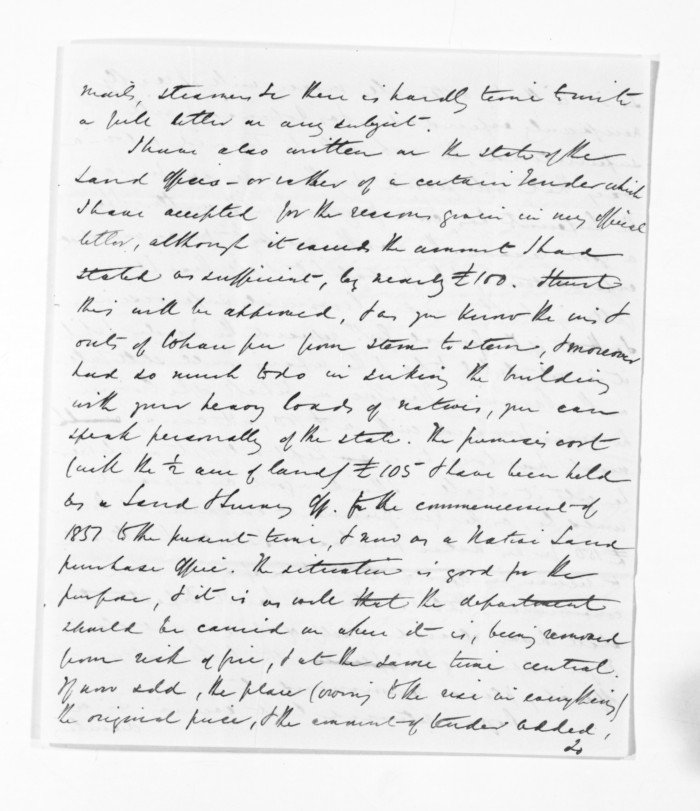 mails, steamers &c there is hardly time to write
a full letter on any subject.
I have also written on the state of the
Land Office – or rather of a certain Tender which
I have accepted for the reasons given in my official
letter, although it exceeds the amount I had
stated as sufficient, by nearly £100. I trust
this will be approved, & as you know the ins &
outs of from stem to stern, & moreover
had so much to do in the building
with your heavy loads of natives, you can
speak personally of the state. The premises cost
(with the ½ acre of land) £105 & have been held
as a Land & Survey Off. fr the commencement of
1857 to the present time, & now as a Native Land
purchase Office. The situation is good for the
purpose, & it is as well that the department
should be carried on where it is, being removed
from risk of fire, & at the same time central.
If now sold, the place (owing to the rise in everything)
the original price, & the amount of tender added,